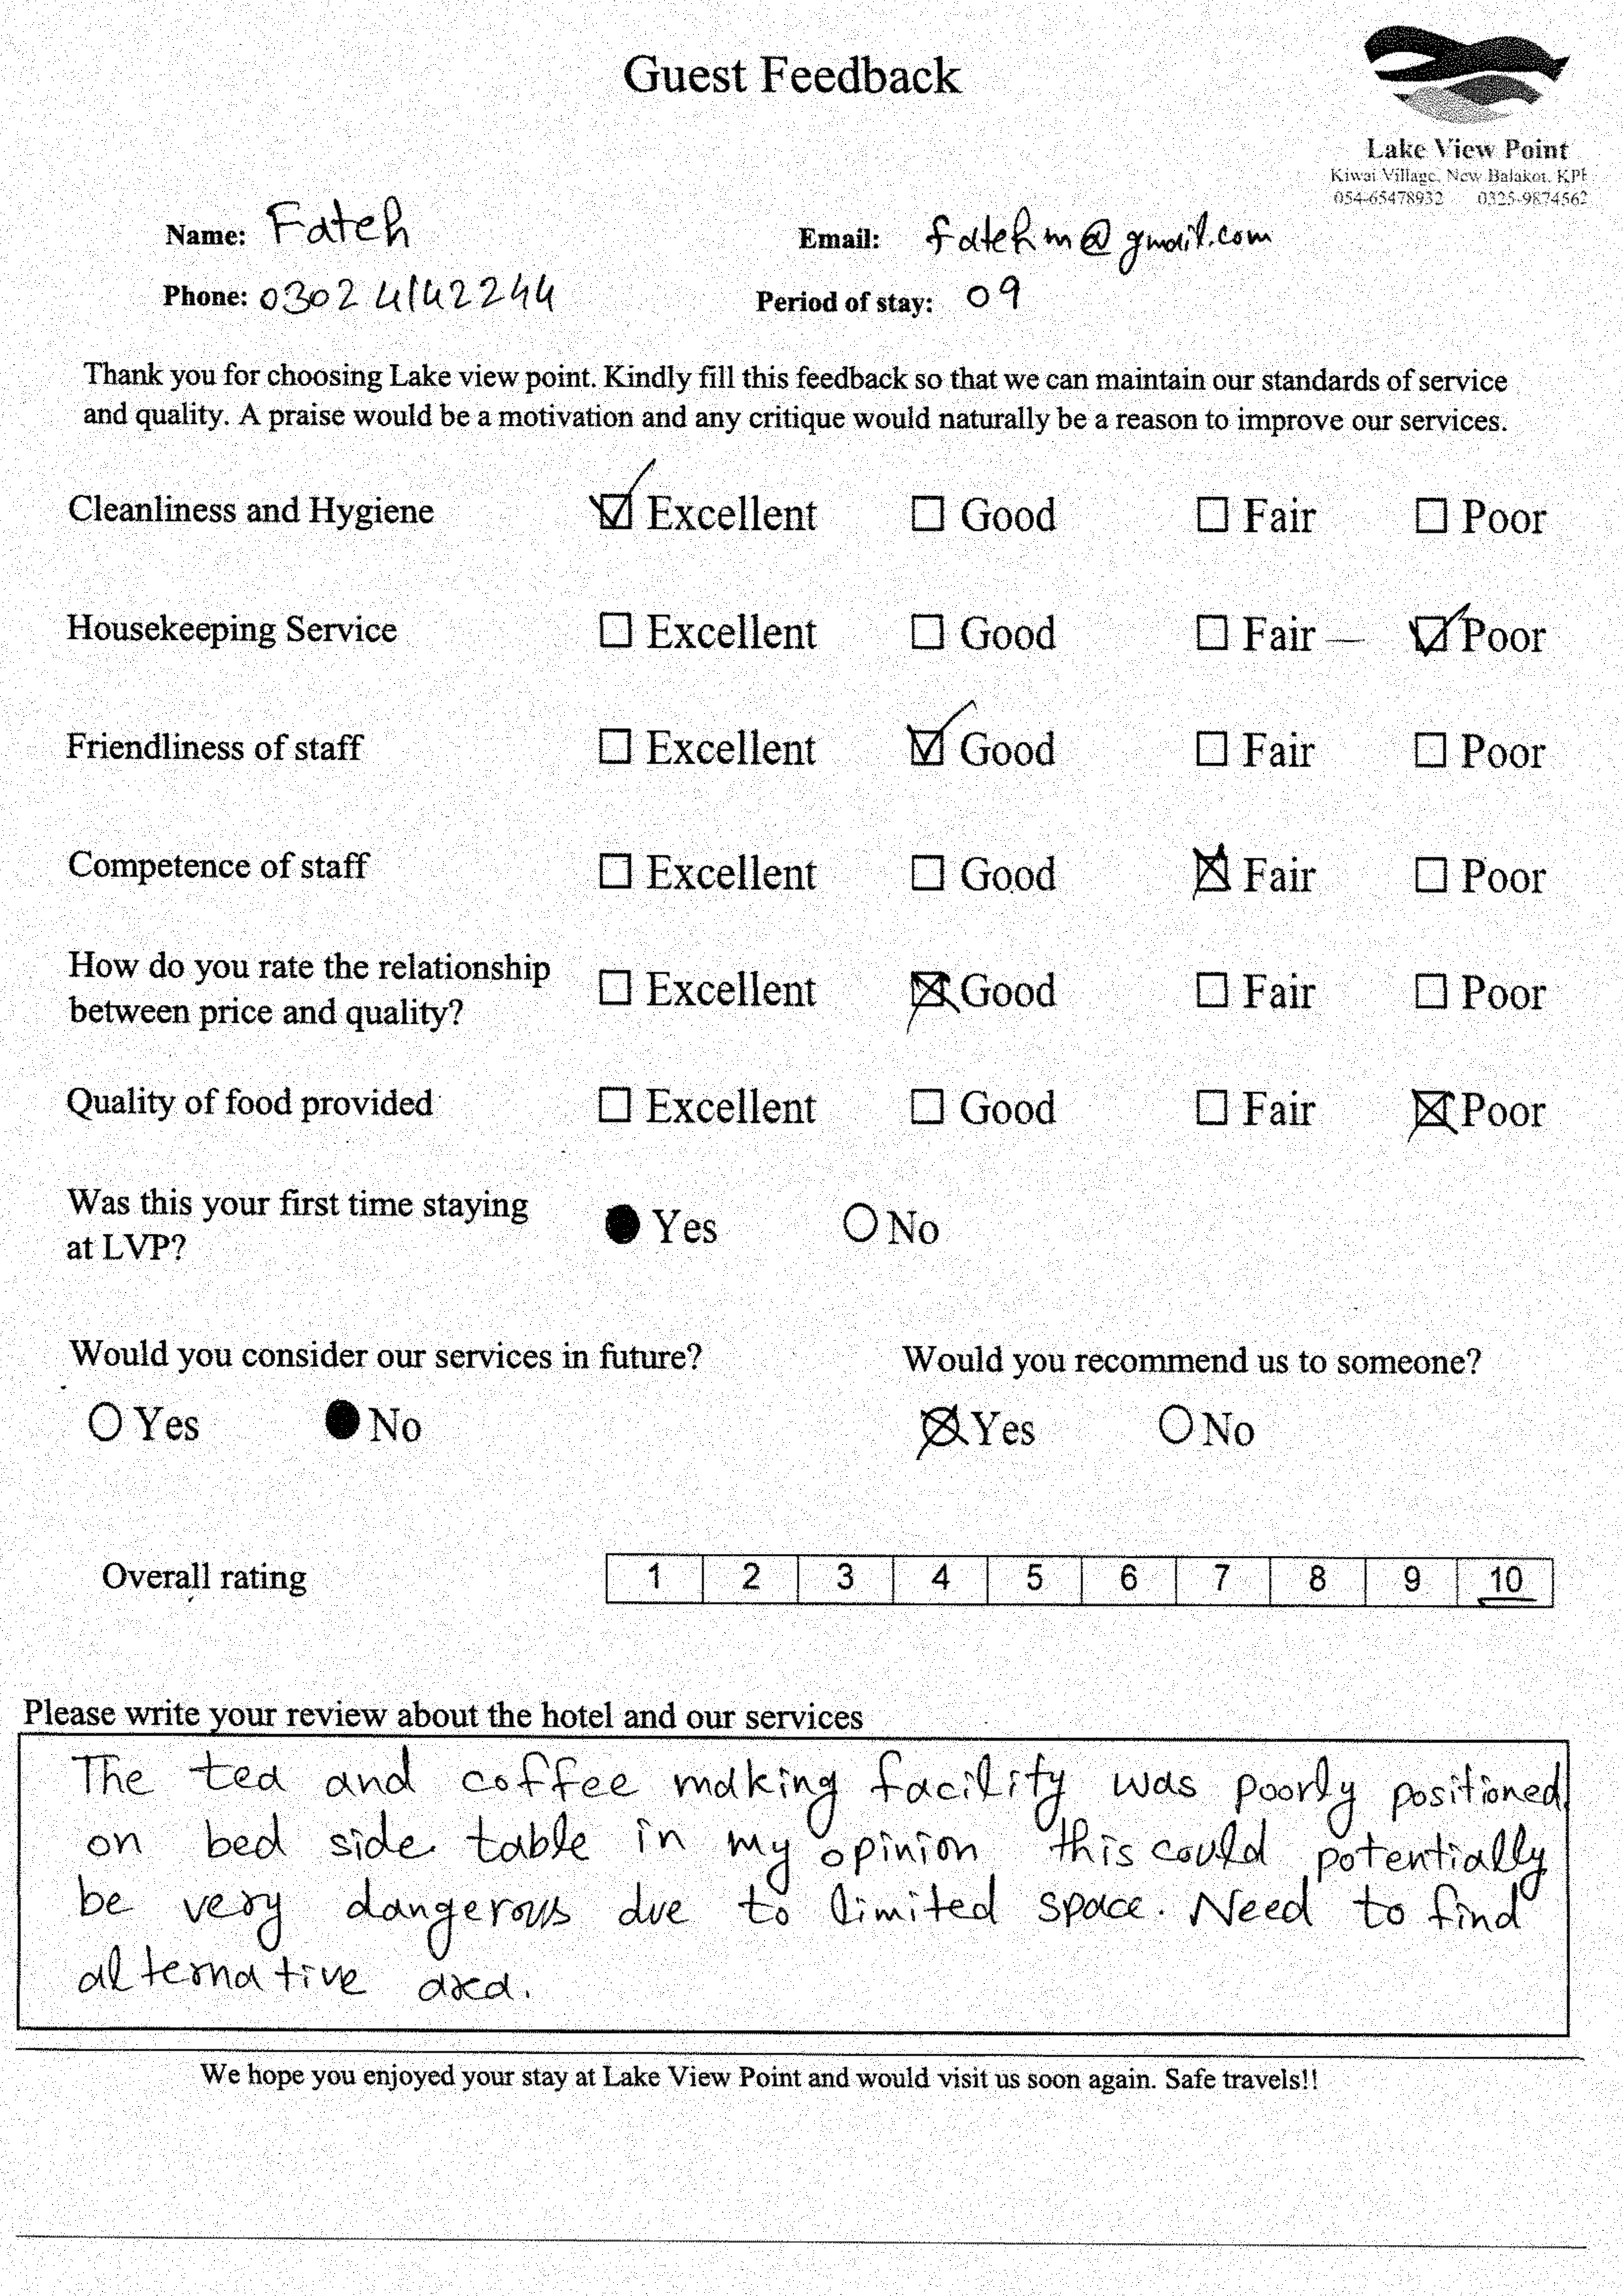 Guest Feedback
Lake View Point
Kiwai Village, New Balakot, KPK
054-65478932 0325-9874562
Name: Fateh
Email: fatehm@gmail.com
Phone: 0302 4142244
Period of stay: 09
Thank you for choosing Lake view point. Kindly fill this feedback so that we can maintain our standards of service
and quality. A praise would be a motivation and any critique would naturally be a reason to improve our services.
Cleanliness and Hygiene ☑ Excellent ☐ Good ☐ Fair ☐ Poor
Housekeeping Service ☐ Excellent ☐ Good ☐ Fair — ☑ Poor
Friendliness of staff ☐ Excellent ☑ Good ☐ Fair ☐ Poor
Competence of staff ☐ Excellent ☐ Good ☒ Fair ☐ Poor
How do you rate the relationship
between price and quality? ☐ Excellent ☒ Good ☐ Fair ☐ Poor
Quality of food provided ☐ Excellent ☐ Good ☐ Fair ☒ Poor
Was this your first time staying
at LVP? ● Yes ○ No
Would you consider our services in future? Would you recommend us to someone?
○ Yes ● No ⊗ Yes ○ No
Overall rating 1 2 3 4 5 6 7 8 9 10
Please write your review about the hotel and our services
The tea and coffee making facility was poorly positioned
on bed side table in my opinion this could potentially
be very dangerous due to limited space. Need to find
alternative area.
We hope you enjoyed your stay at Lake View Point and would visit us soon again. Safe travels!!